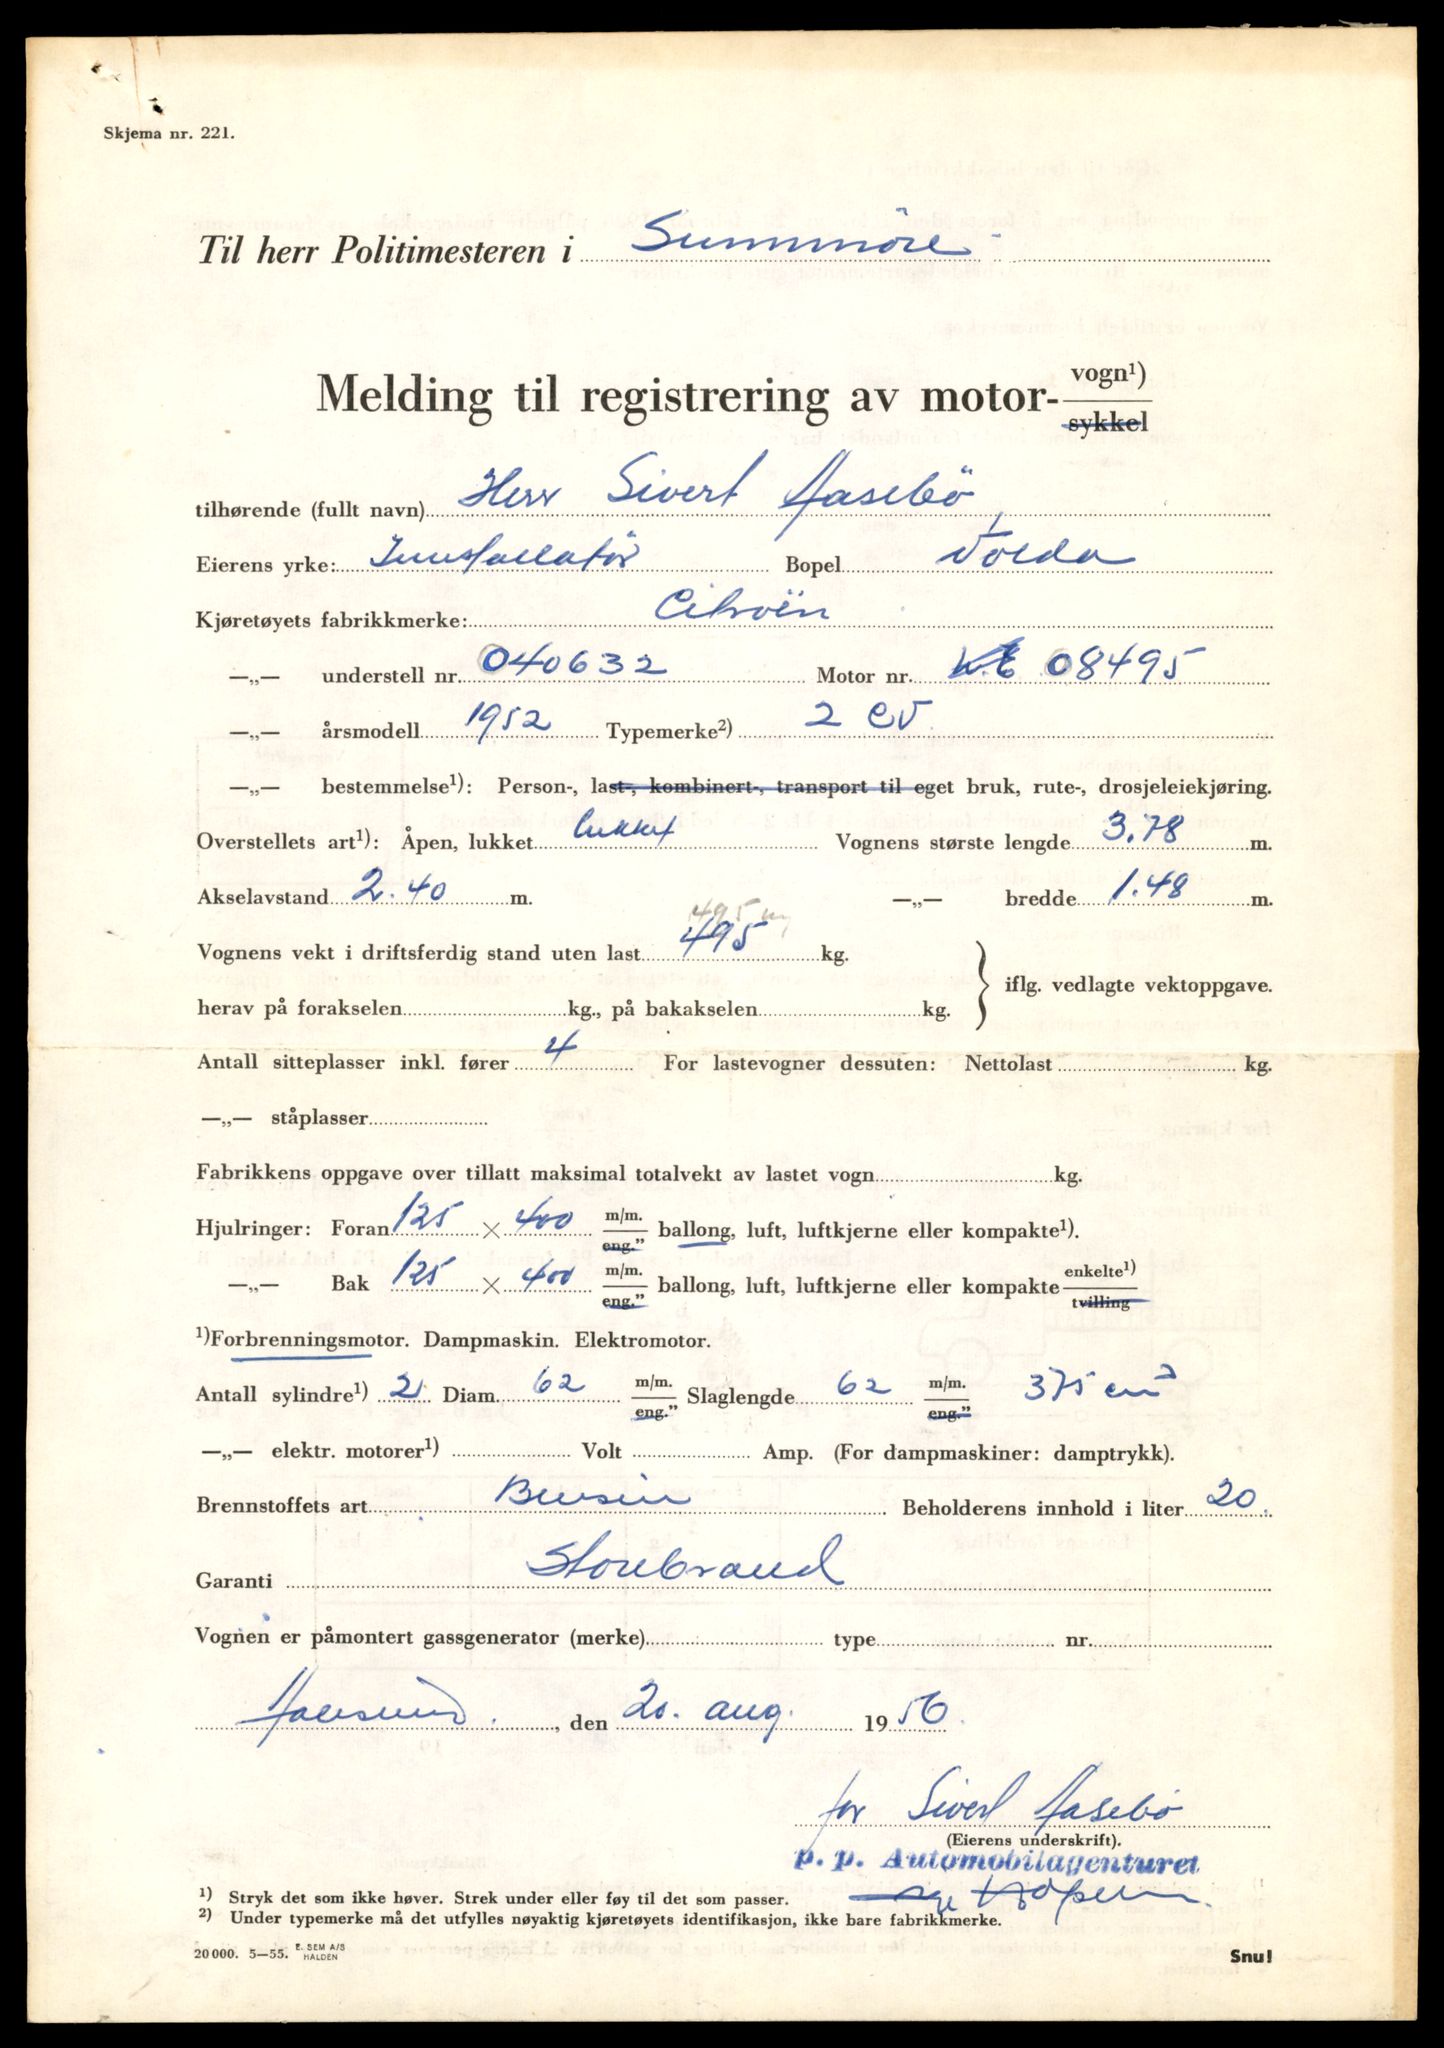 Skjema nr. 221.
Til herr Politimesteren i Sunnmöre
Melding til registrering av motor- vogn¹)
sykkel
tilhørende (fullt navn) Herr Sivert Aasebö,
Eierens yrke: Innstallatör Bopel Volda
Kjøretøyets fabrikkmerke: Citroën
—„— understell nr. 040632 Motor nr. 08495
—„— årsmodell 1952 Typemerke²) 2 CV
—„— bestemmelse¹): Person-, last-, kombinert-, transport til eget bruk, rute-, drosjeleiekjøring.
Overstellets art¹): Åpen, lukket lukket Vognens største lengde 3,78 m.
Akselavstand 2.40 m. —„— bredde 1.48 m.
495
Vognens vekt i driftsferdig stand uten last 495 kg.
herav på forakselen kg., på bakakselen kg. } iflg. vedlagte vektoppgave.
Antall sitteplasser inkl. fører 4 For lastevogner dessuten: Nettolast kg.
—„— ståplasser
Fabrikkens oppgave over tillatt maksimal totalvekt av lastet vogn kg.
Hjulringer: Foran 125 × 400 m/m. eng." ballong, luft, luftkjerne eller kompakte¹).
—„— Bak 125 × 400 m/m. eng." ballong, luft, luftkjerne eller kompakte enkelte¹) tvilling
¹)Forbrenningsmotor. Dampmaskin. Elektromotor.
Antall sylindre¹) 2 Diam. 62 m/m. eng." Slaglengde 62 m/m. eng." 375 cm³
—„— elektr. motorer¹) Volt Amp. (For dampmaskiner: damptrykk).
Brennstoffets art Bensin Beholderens innhold i liter 20.
Garanti Storebrand
Vognen er påmontert gassgenerator (merke) type nr.
Aalesund, den 20. aug. 1956.
for Sivert Aasebö
(Eierens underskrift).
p. p. Automobilagenturet
¹) Stryk det som ikke høver. Strek under eller føy til det som passer.
²) Under typemerke må det utfylles nøyaktig kjøretøyets identifikasjon, ikke bare fabrikkmerke.
20 000. 5—55. E. SEM A/S HALDEN
Snu!